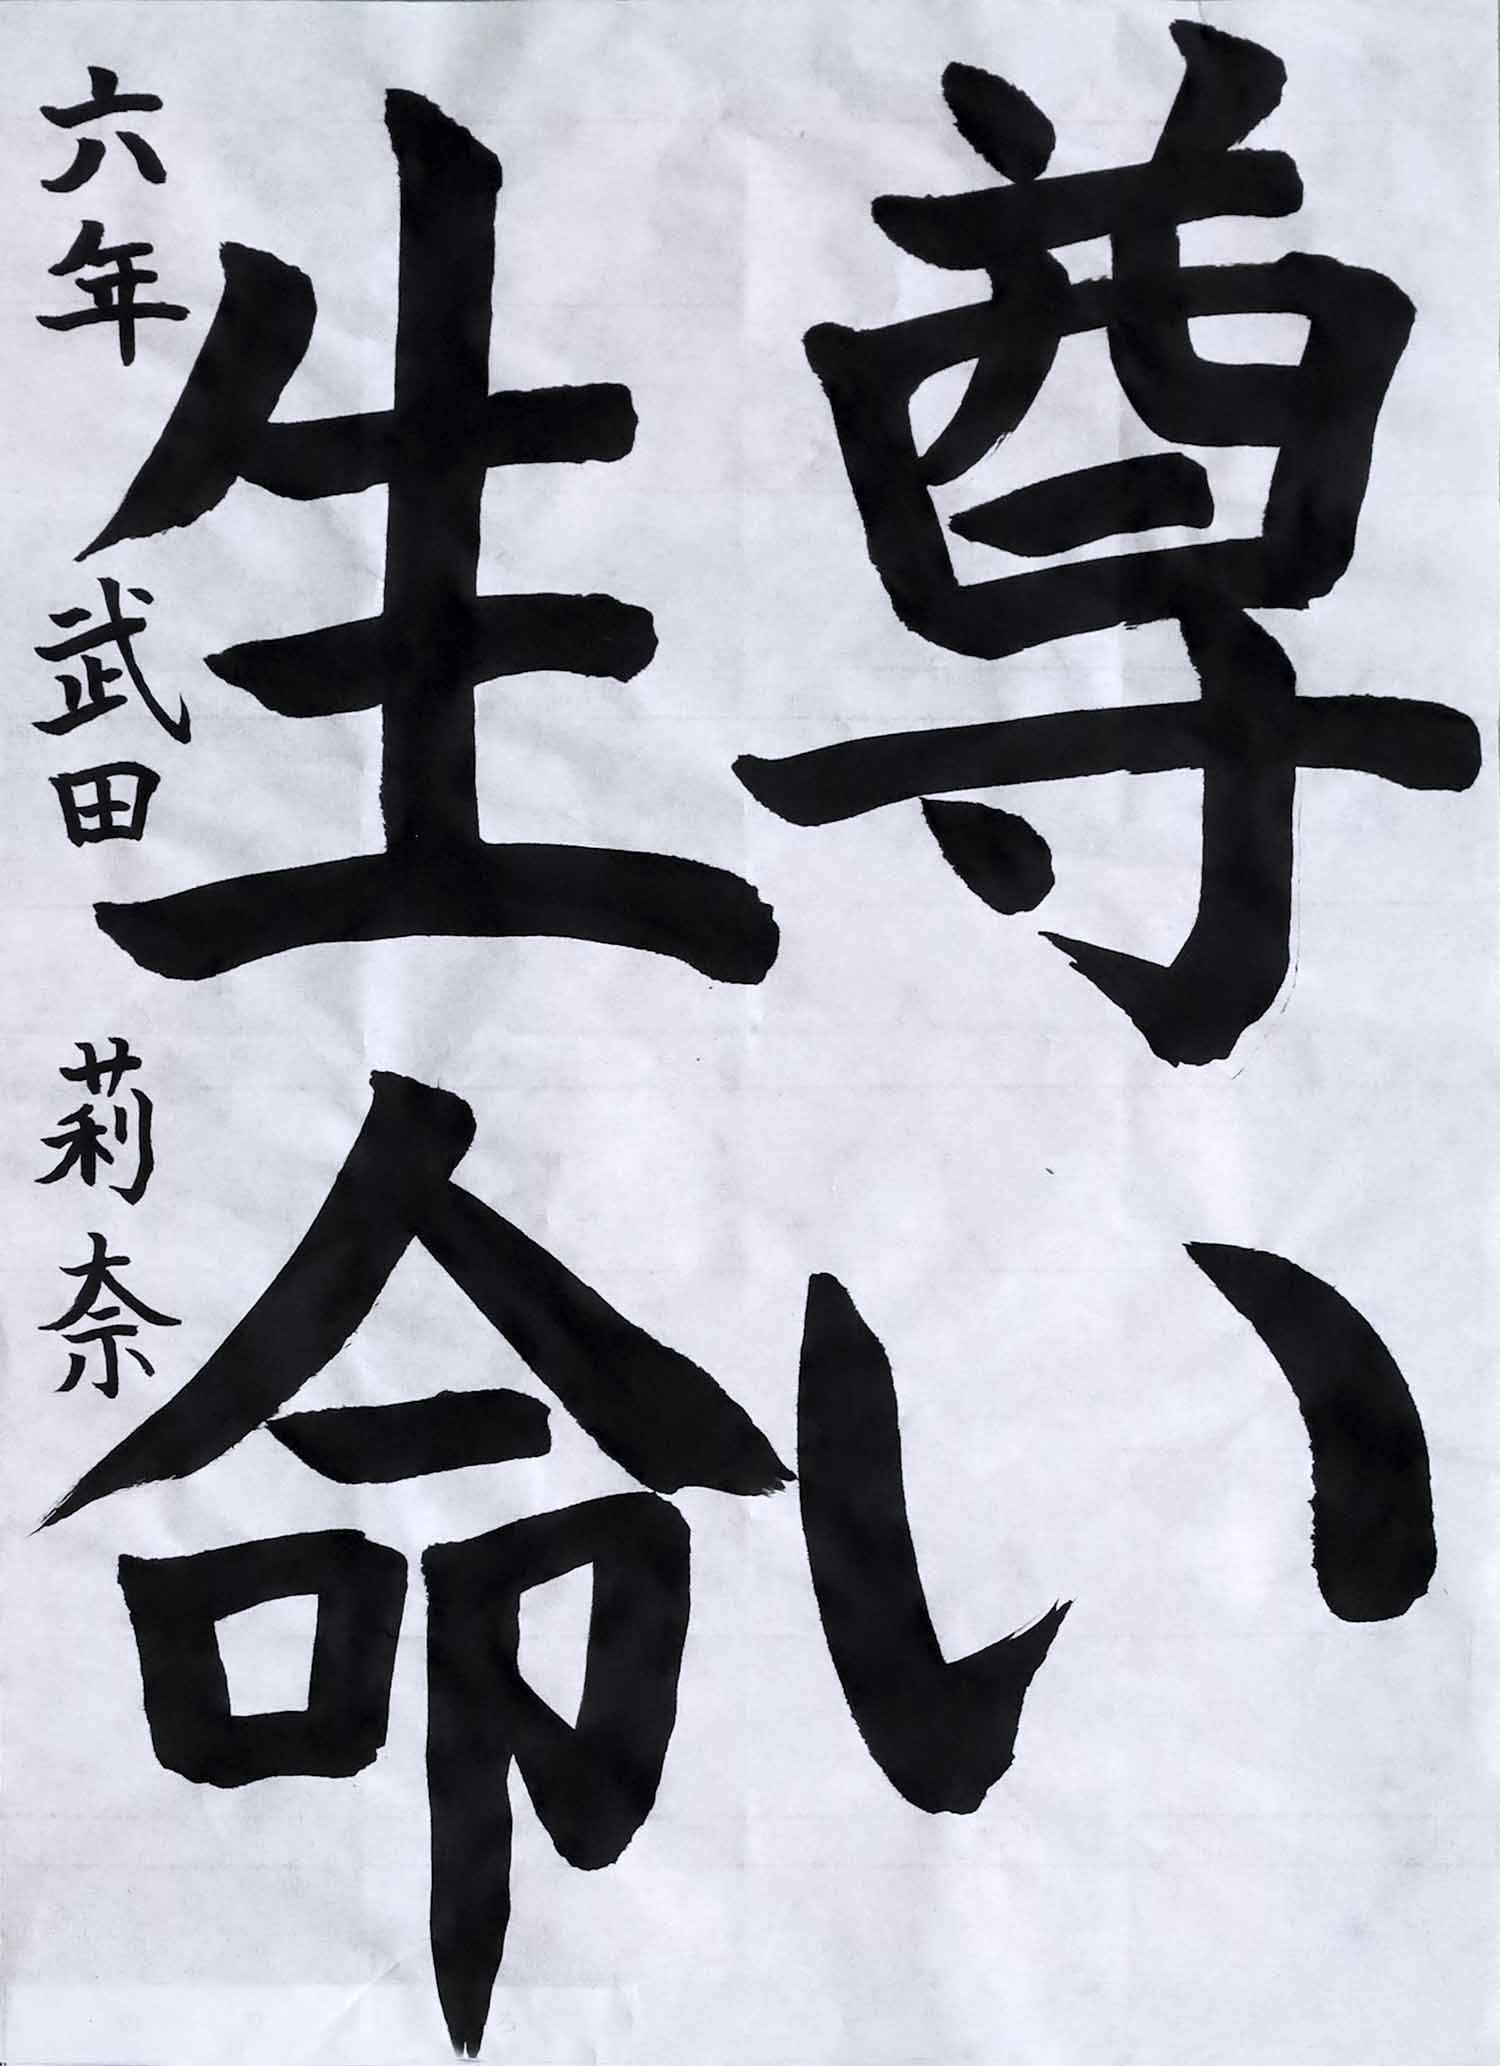 尊い
生命
六年 武田 莉奈